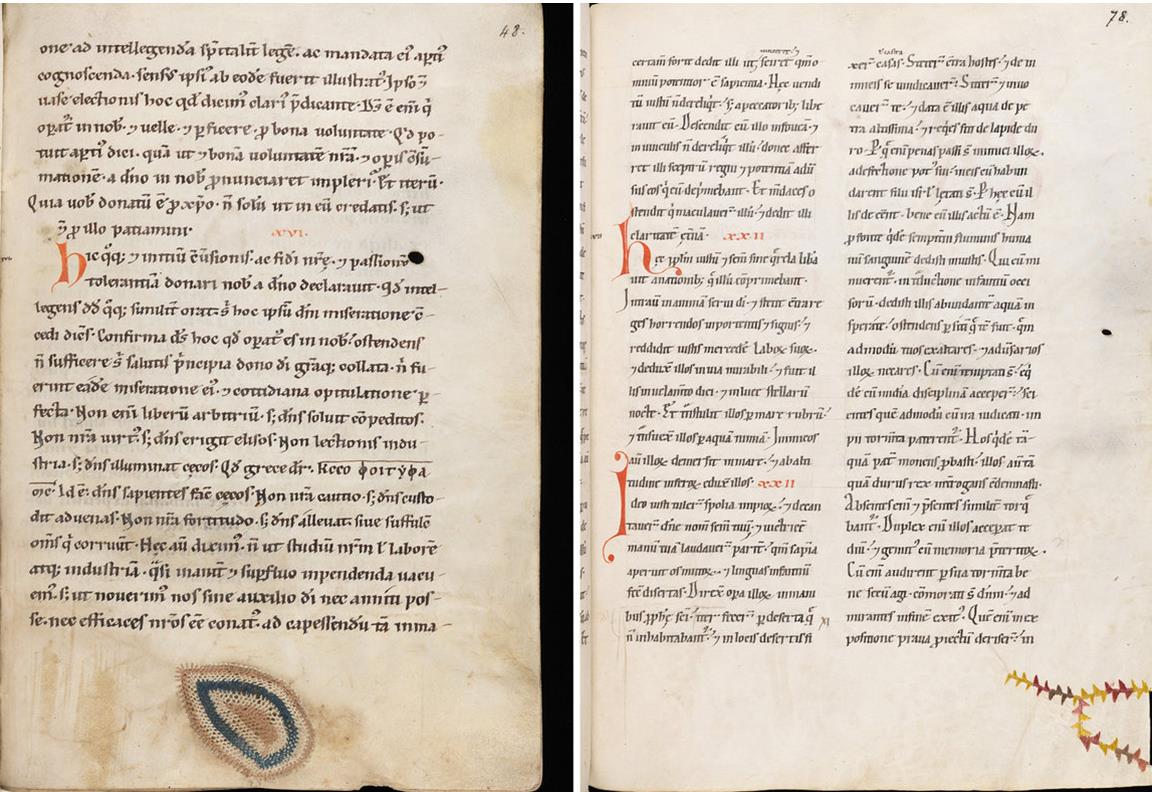 48.
one ad intellegenda sp̄italīū legē. ac mandata ei᾽ aptī᾽
cognoscenda. sensꝰ ipsi᾽ ab eodē fuerit illustrat᾽. Ipso
uase electionis hoc qd̄ dicim᾽ clari᾽ p̄dicante. Dꝰ ē eni
opat᾽ in nob᾽. ⁊ uelle. ⁊ ꝑficere. ꝓ bona uoluntate. Qd̄ po-
tuit apti᾽ dici. quā ut ⁊ bonā uoluntatē nrā. ⁊ opis ꝯsū-
mationē. a dn̄o in nob᾽ ꝓnunciaret impleri. Et iterū.
Quia uob᾽ donatū ē ꝓ xp̄o. n̄ solū ut in eū credatis. s; ut
⁊ ꝓ illo patiamini. XVI.
hic qq; ⁊ initiū ꝯuersionis. ac fidei nrę. ⁊ passionū
tolerantiā donari nob᾽ a dn̄o declarauit. Qd̄ intel-
legens dd̄ qq; similit᾽ orat hoc ipsū dn̄i miseratione ꝯ-
cedi dicēs. Confirma dꝰ hoc qd̄ opat᾽ es in nob᾽. ostendens
n̄ sufficere salutis p̄ncipia dono dī grāq; collata. n̄ fu-
erint eadē miseratione ei᾽. ⁊ cottidiana opitulatione ꝑ-
fecta. Non enī liberū arbitriū. s; dn̄s soluit cōpeditos.
Non nrā uirt᾽. s; dn̄s erigit elisos. Non lectionis indu-
stria. s; dn̄s illuminat cęcos. Qd̄ grece dr̄.
Id ē. dn̄s sapientes facit cęcos. Non nrā cautio. s; dn̄s custo-
dit aduenas. Non nrā fortitudo. s; dn̄s alleuat. siue suffulcit
om̄s q corruūt. Hęc aū dixim᾽. n̄ ut studiū nrm̄ ł laborē
atq; industriā. qsi inanit᾽ ⁊ supfluo inpendenda uacu-
em᾽. s; ut nouerim᾽ nos sine auxilio dī nec anniti pos-
se. nec efficaces nrōs eē conat᾽. ad capessendū tā inma-
78.
certam̄ forte dedit illi ut sciret qm̄ o
mniū potentior ē sapientia. Hęc uendi
tū iustū n̄ dereliqt. s; a peccatorib᾽ libe
rauit eū. Descendit cū illo in foueā. ⁊
in uinculis n̄ dereliqt illū. donec affer
ret illi sceptrū regni ⁊ potentiā adū
sus eos q eū deprimebant. Et mdaces o
stendit q maculauer᾽ illū. ⁊ dedit illi
claritatē et̄nā. XXII
hęc ppłm iustū ⁊ sem̄ sine qrela libā
uit a nationib᾽ q illū cōprimebant.
Intrauit in animā serui dī. ⁊ stetit cont̄ re
ges horrendos in portentis ⁊ signis. ⁊
reddidit iustis mercedē laboꝝ suoꝝ.
⁊ deduxit illos in uia mirabili. ⁊ fuit il
lis in uelam̄to diei. ⁊ in luce stellarū
nocte. Et t̄nstulit illos ꝑ mare rubrū.
⁊ t̄nsuexit illos ꝑ aquā nimiā. Inimicos
aū illoꝝ demersit in mare. ⁊ ab alti
tudine inferoꝝ eduxit illos. XXII
Ideo iusti tuler᾽ spolia impioꝝ. ⁊ decan
tauer᾽ dn̄e nom̄ sc̄m tuū. ⁊ uictrice
manū tuā laudauer᾽ parit᾽. qm̄ sapiā
aperuit os mutoꝝ. ⁊ linguas infantiū
fecit disertas. Direxit opa illoꝝ in mani
bus pphę sc̄i. iter fecer᾽ ꝑ deserta q
n̄ inhabitabant᾽. ⁊ in locis desertis fi
xer᾽ casas. Steter᾽ cont̄ra hostes. ⁊ de ini
micis se uindicauer᾽. Sitier᾽ ⁊ inuo
cauer᾽ te. ⁊ data ē illis aqua de pe
tra altissima. ⁊ reqes sitis de lapide du
ro. P q enī penas passi s̄ inimici illoꝝ.
a defectione potus sui. in eis cū habun
darent filii isrł letati s̄. P hęc cū il
lis deēent. bene cū illis actū ē. Nam
ꝓ fonte qde sempit̄ni fluminis huma
nū sanguinē dedisti iniustis. Qui cū mi
nuerent᾽. in t̄ductione infantiū occi
sorū. dedisti illis abundantē aquā in
sperate. ostendens ꝑ sitī q tc̄ fuit. qm̄
admodū tuos exaltares. ⁊ adūsarios
illoꝝ necares. Cū enī temptati s̄. ⁊ q
dē cū mīdia disciplinā acceper᾽. sci
entes que admodū cū ira iudicati im
pii torm̄ta paterent᾽. Hos qde tā-
quā pat᾽ monens ꝓbasti. illos aū tā
quā durus rex int̄rogans ꝯdemnasti.
Absentes enī ⁊ psentes similit᾽ torq
bant᾽. Duplex enī illos acceperat te
diū. ⁊ gemit᾽ cū memoria p̄teritoꝝ.
Cū enī audirent ꝑ sua torm̄ta be
ne secū agi. cōmorati s̄ dnm̄. ⁊ ad
mirantes in finē exit᾽. Quē enī in ex
positione praua piectū deriser᾽. in